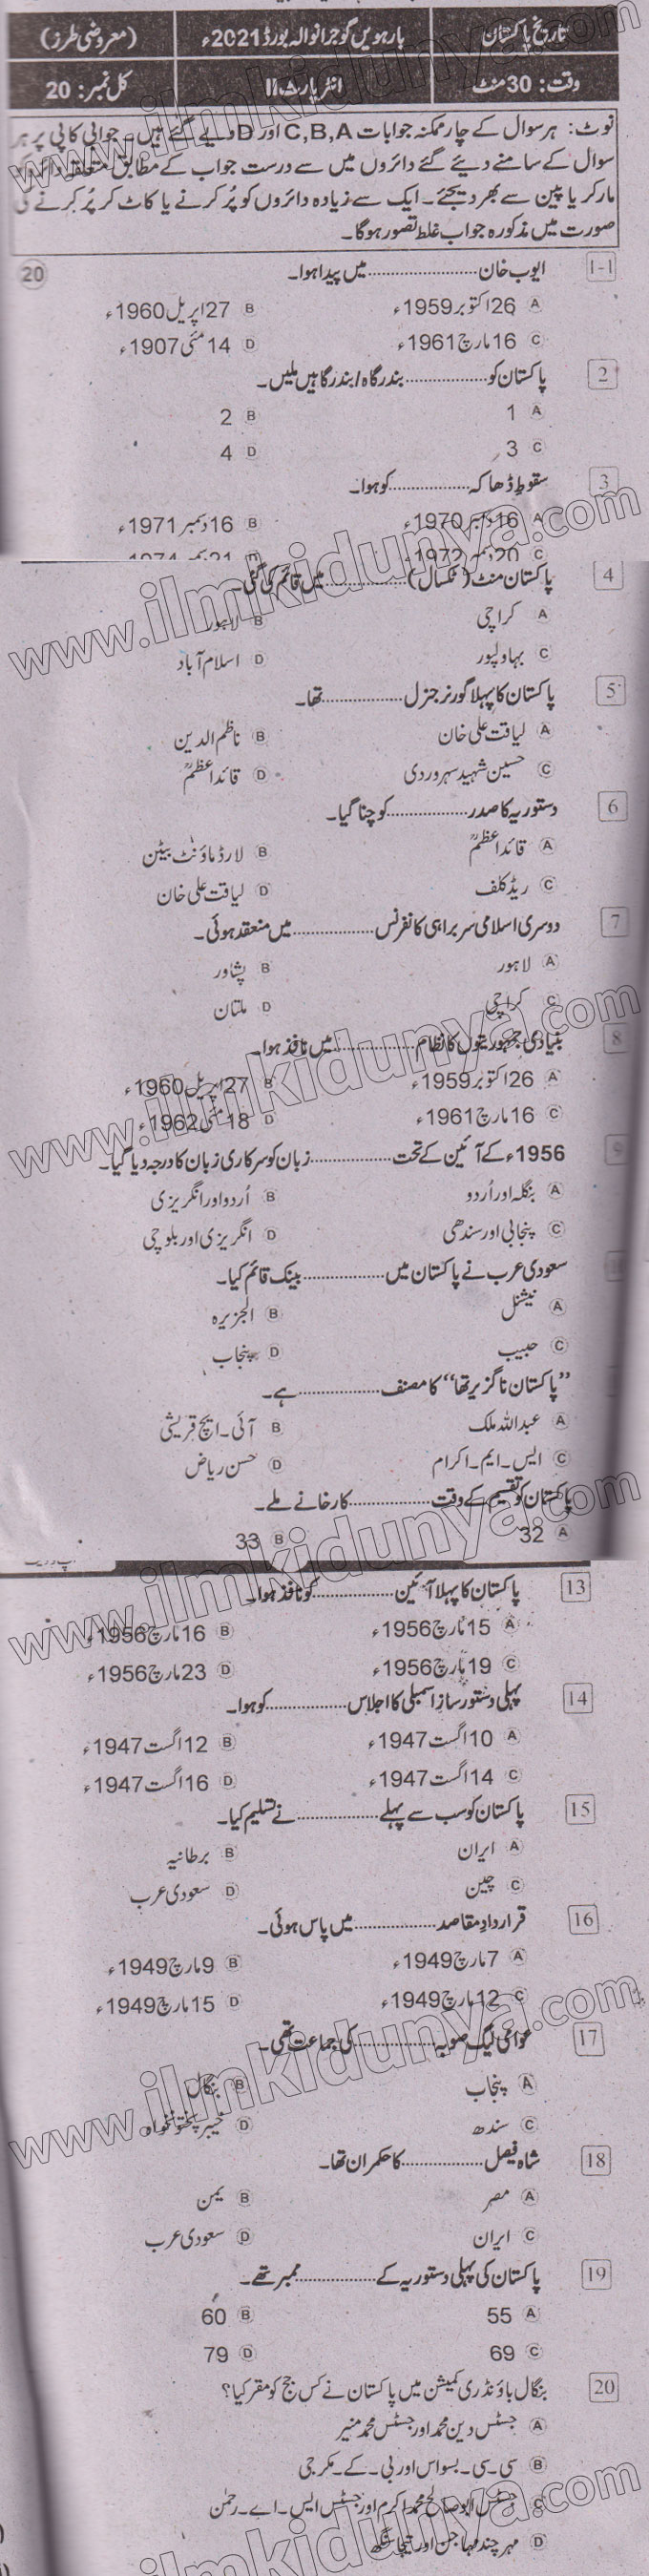 تاریخ پاکستان بارہویں گوجرانوالہ بورڈ 2021ء (معروضی طرز)
وقت: 30 منٹ انٹر پارٹ ۔II کل نمبر: 20
نوٹ: ہر سوال کے چار ممکنہ جوابات C,B,A اور D دیے گئے ہیں۔ جوابی کاپی پر ہر
سوال کے سامنے دیئے گئے دائروں میں سے درست جواب کے مطابق متعلقہ دائرہ کو
مارکر یا پین سے بھر دیجئے۔ ایک سے زیادہ دائروں کو پُر کرنے یا کاٹ کر پُر کرنے کی
صورت میں مذکورہ جواب غلط تصور ہوگا۔
1-1 ایوب خان ........................ میں پیدا ہوا۔ 20
A 26 اکتوبر 1959ء B 27 اپریل 1960ء
C 16 مارچ 1961ء D 14 مئی 1907ء
2 پاکستان کو ................... بندرگاہ/بندرگاہیں ملیں۔
A 1 B 2
C 3 D 4
3 سقوطِ ڈھاکہ ................... کو ہوا۔
A 16 دسمبر 1970ء B 16 دسمبر 1971ء
C 20 دسمبر 1972 D 21 دسمبر 1974
4 پاکستان منٹ (ٹکسال) ................... میں قائم کی گئی۔
A کراچی B لاہور
C بہاولپور D اسلام آباد
5 پاکستان کا پہلا گورنر جنرل ................... تھا۔
A لیاقت علی خان B ناظم الدین
C حسین شہید سہروردی D قائداعظمؒ
6 دستوریہ کا صدر ................... کو چنا گیا۔
A قائداعظمؒ B لارڈ ماؤنٹ بیٹن
C ریڈ کلف D لیاقت علی خان
7 دوسری اسلامی سربراہی کانفرنس ................... میں منعقد ہوئی۔
A لاہور B پشاور
C کراچی D ملتان
8 بنیادی جمہوریتوں کا نظام ................... میں نافذ ہوا۔
A 26 اکتوبر 1959ء B 27 اپریل 1960ء
C 16 مارچ 1961ء D 18 مئی 1962ء
9 1956ء کے آئین کے تحت ................... زبان کو سرکاری زبان کا درجہ دیا گیا۔
A بنگلہ اور اُردو B اُردو اور انگریزی
C پنجابی اور سندھی D انگریزی اور بلوچی
سعودی عرب نے پاکستان میں ................... بینک قائم کیا۔
A نیشنل B الجزیرہ
C حبیب D پنجاب
”پاکستان ناگزیر تھا“ کا مصنف ................... ہے۔
A عبداللہ ملک B آئی۔ ایچ قریشی
C ایس۔ ایم۔ اکرام D حسن ریاض
پاکستان کو تقسیم کے وقت ................... کارخانے ملے۔
A 32 B 33
13 پاکستان کا پہلا آئین ................... کو نافذ ہوا۔
A 15 مارچ 1956ء B 16 مارچ 1956ء
C 19 مارچ 1956ء D 23 مارچ 1956ء
14 پہلی دستور ساز اسمبلی کا اجلاس ................... کو ہوا۔
A 10 اگست 1947ء B 12 اگست 1947ء
C 14 اگست 1947ء D 16 اگست 1947ء
15 پاکستان کو سب سے پہلے ................... نے تسلیم کیا۔
A ایران B برطانیہ
C چین D سعودی عرب
16 قراردادِ مقاصد ................... میں پاس ہوئی۔
A 7 مارچ 1949ء B 9 مارچ 1949ء
C 12 مارچ 1949ء D 15 مارچ 1949ء
17 عوامی لیگ صوبہ ................... کی جماعت تھی۔
A پنجاب B بنگال
C سندھ D خیبر پختونخواہ
18 شاہ فیصل ................... کا حکمران تھا۔
A مصر B یمن
C ایران D سعودی عرب
19 پاکستان کی پہلی دستوریہ کے ................... ممبر تھے۔
A 55 B 60
C 69 D 79
20 بنگال باؤنڈری کمیشن میں پاکستان نے کس جج کو مقرر کیا؟
A جسٹس دین محمد اور جسٹس محمد منیر
B سی۔ سی۔ بسواس اور بی۔ کے۔ مکرجی
C جسٹس ابو صالح محمد اکرم اور جسٹس ایس۔ اے۔ رحمٰن
D مہر چند مہاجن اور تیجا سنگھ
www.ilmkidunya.com
www.ilmkidunya.com
www.ilmkidunya.com
www.ilmkidunya.com
www.ilmkidunya.com
www.ilmkidunya.com